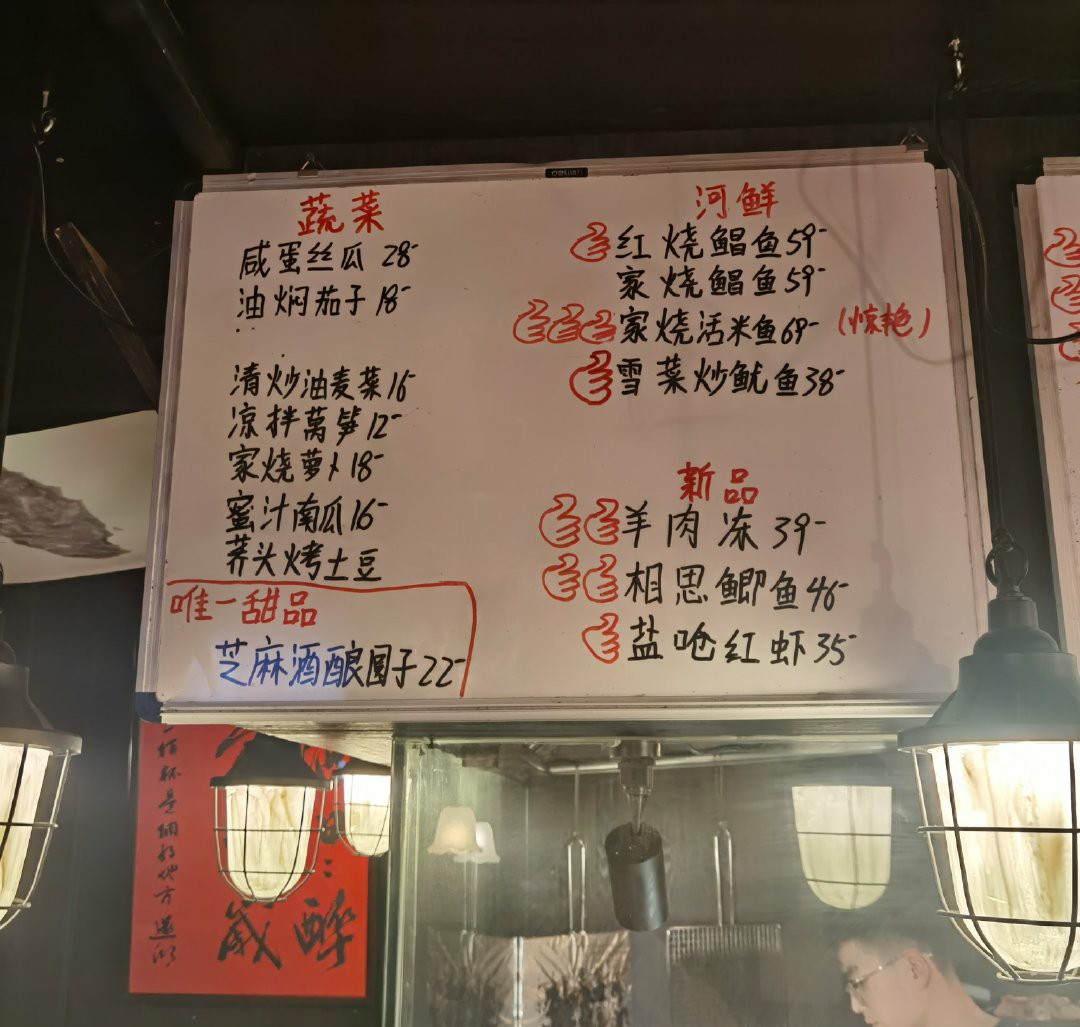 蔬菜
咸蛋丝瓜 28-
油焖茄子 18-
清炒油麦菜 16
凉拌莴笋 12-
家烧萝卜 18-
蜜汁南瓜 16-
荞头烤土豆
唯一甜品
芝麻酒酿圆子 22-
河鲜
红烧鲳鱼 59-
家烧鲳鱼 59-
家烧活米鱼 69- (惊艳)
雪菜炒鱿鱼 38-
新品
羊肉冻 39-
相思鲫鱼 46-
盐呛红虾 35-